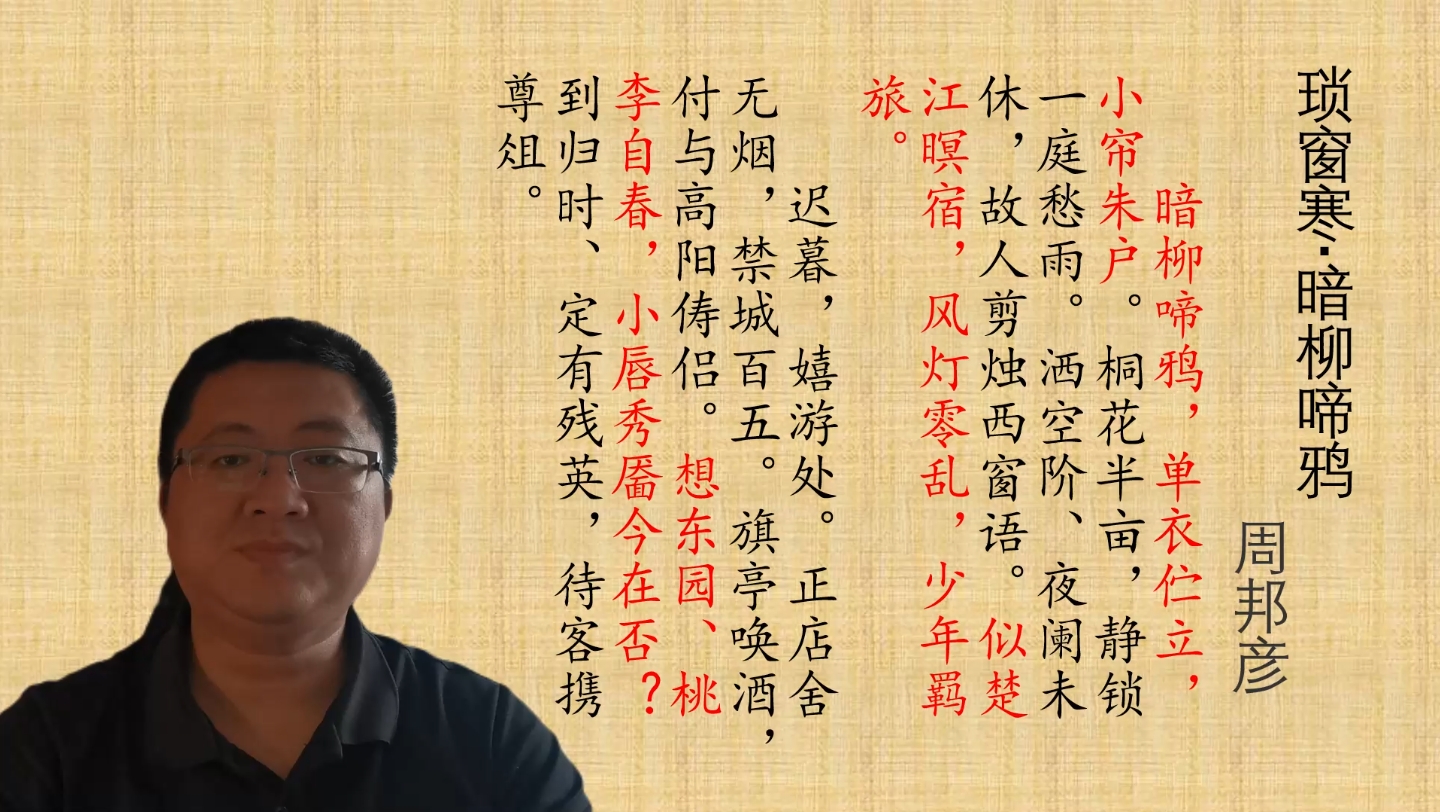 琐窗寒·暗柳啼鸦
周邦彦
暗柳啼鸦，单衣伫立，
小帘朱户。桐花半亩，静锁
一庭愁雨。洒空阶、夜阑未
休，故人剪烛西窗语。似楚
江暝宿，风灯零乱，少年羁
旅。
迟暮，嬉游处。正店舍
无烟，禁城百五。旗亭唤酒，
付与高阳俦侣。想东园、桃
李自春，小唇秀靥今在否？
到归时、定有残英，待客携
尊俎。